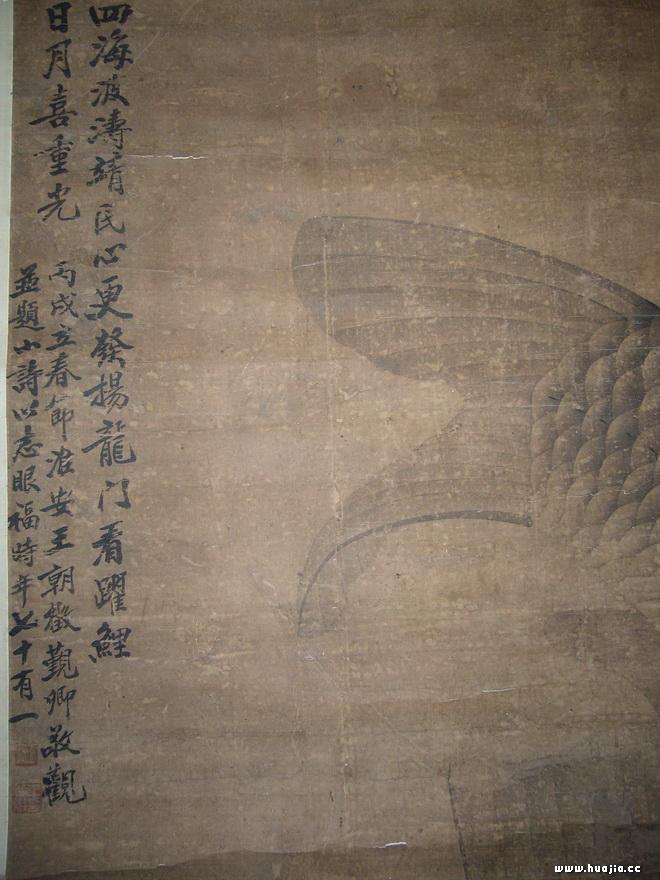 四海波涛靖民心更發揚龍门看躍鯉
日月喜重光
丙戌立春節淮安王朝徵觐卿敬觀
並題小詩以志眼福時年七十有一
www.huajia.cc